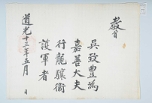 敎旨
吳致豊爲
嘉善大夫
行龍驤衛
護軍者
道光十三年五月